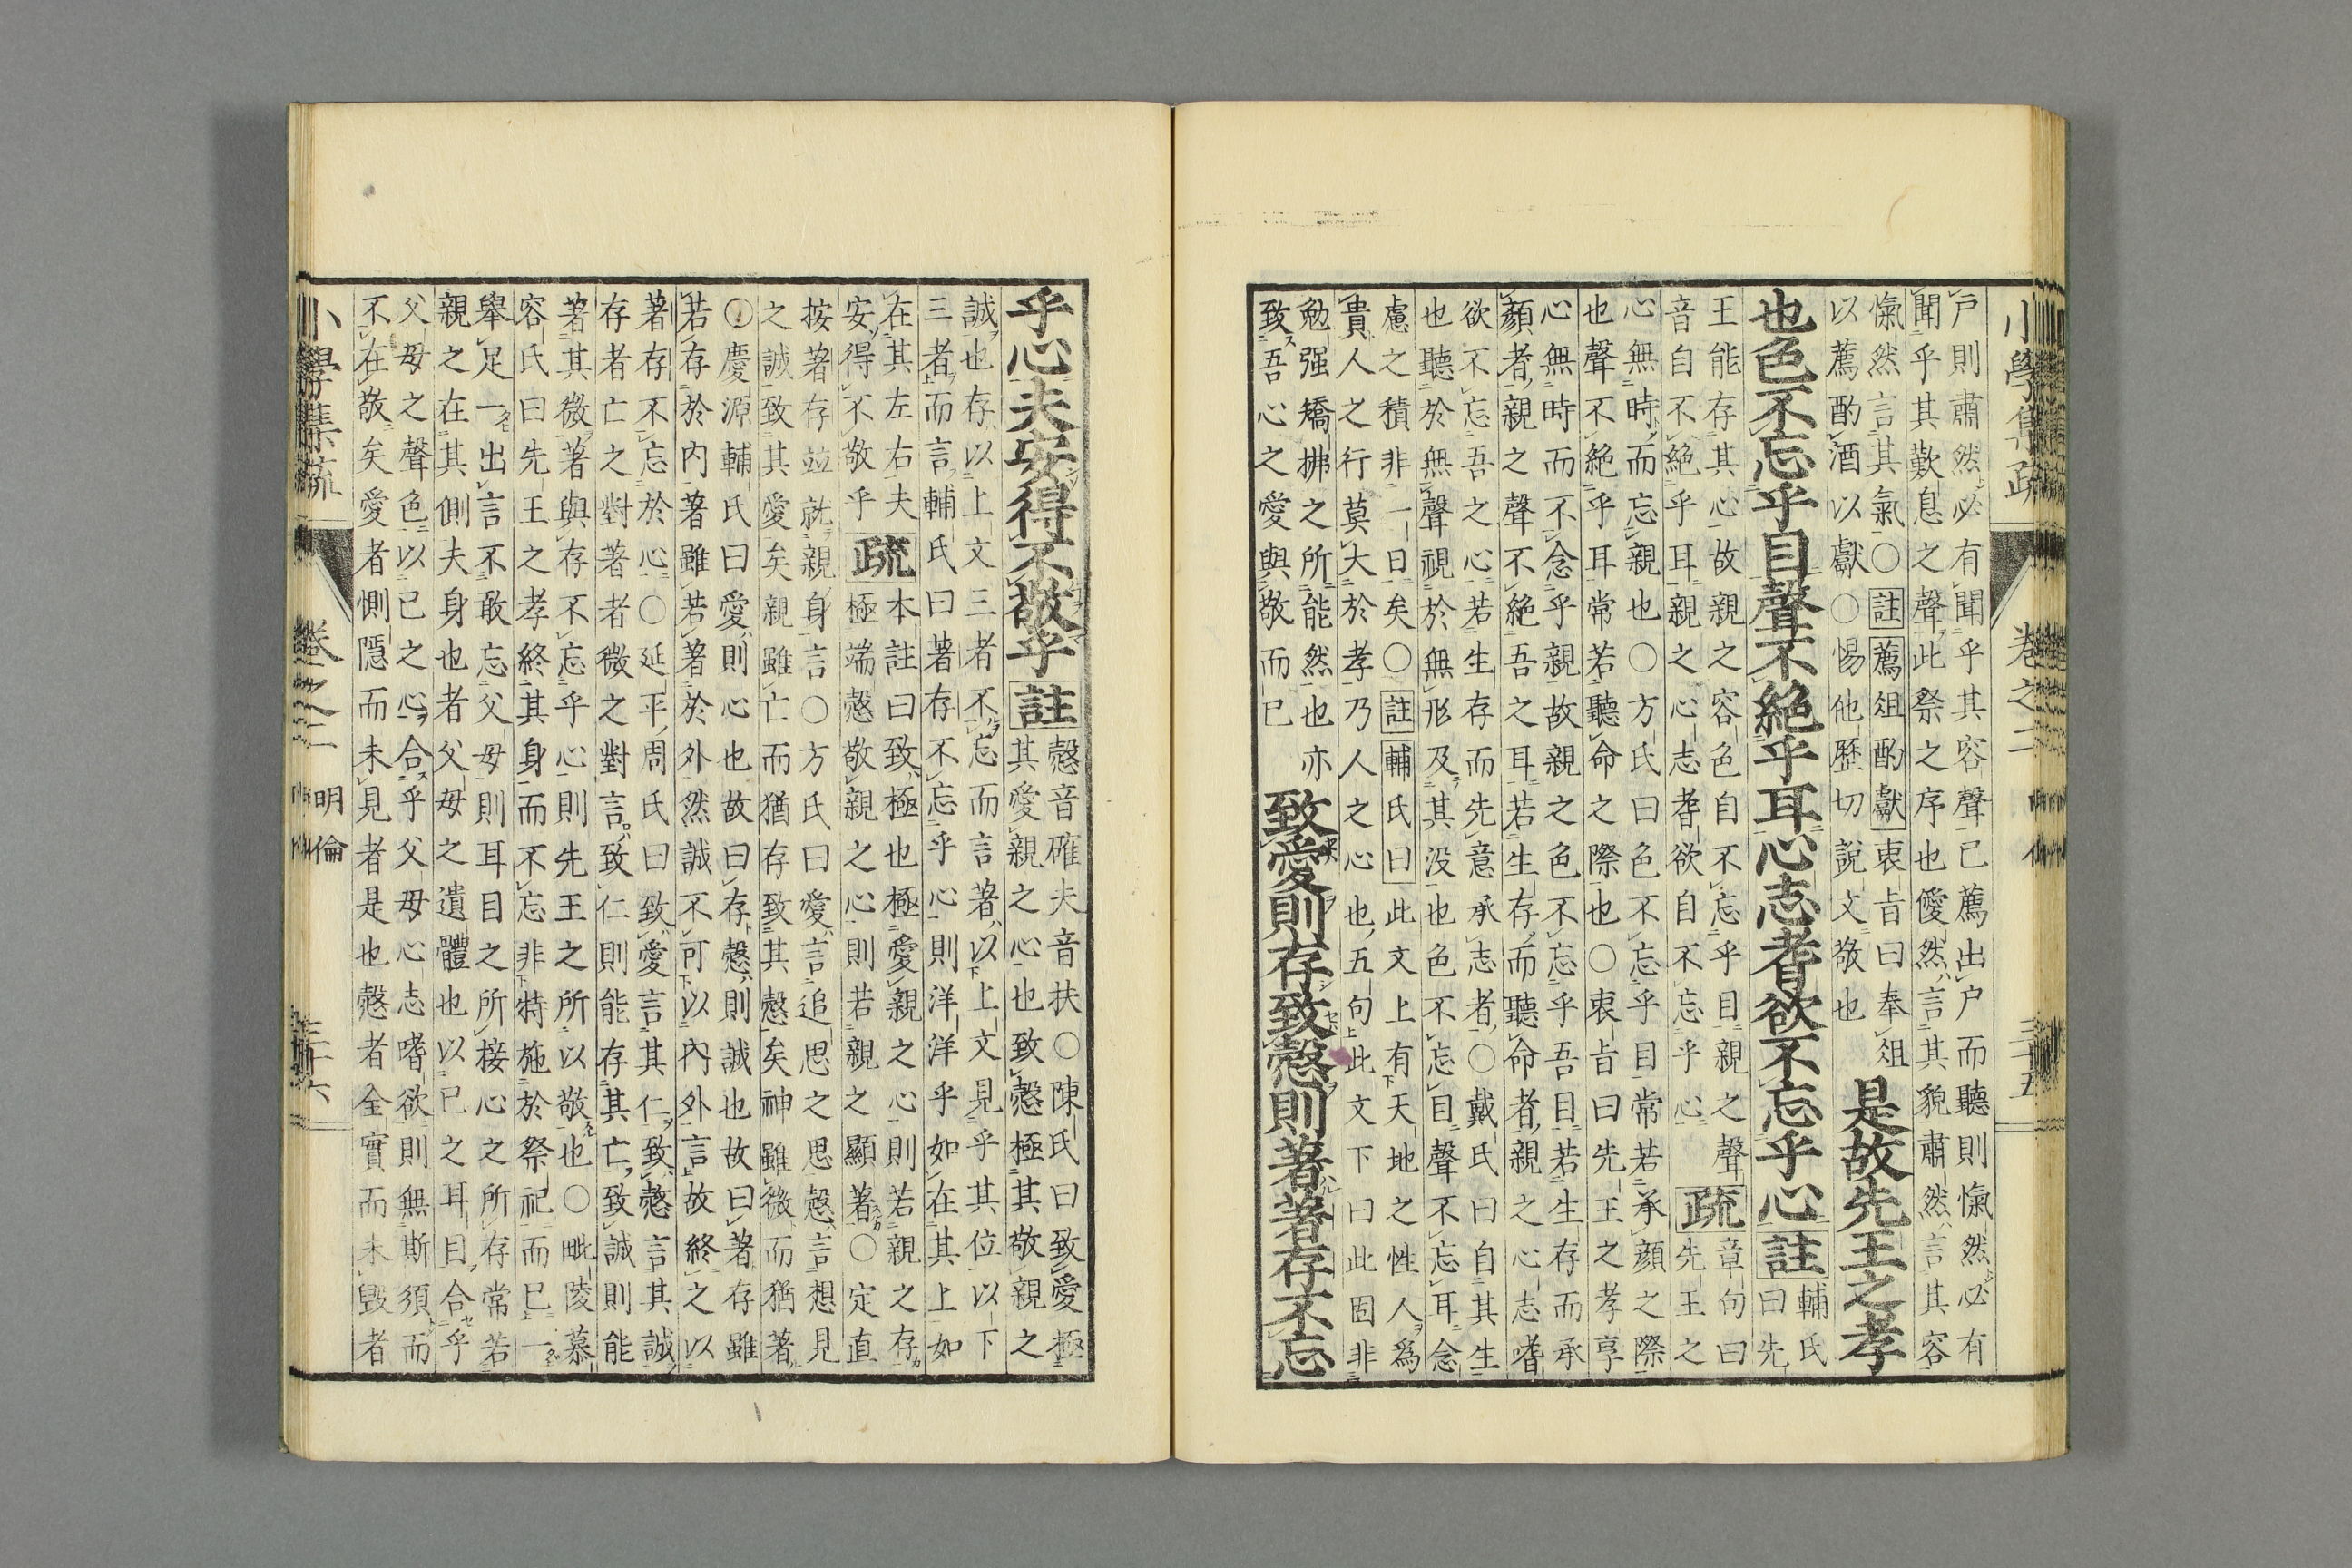 小學集疏 卷之二 明倫 三十五
戸則肅然必有聞乎其容聲已薦出戸而聽則愾然必有
聞乎其歎息之聲此祭之序也僾然言其貌肅然言其容
愾然言其氣○註薦俎酌獻衷旨曰奉俎
以薦酌酒以獻○惕他歷切說文敬也
是故先王之孝
也色不忘乎目聲不絕乎耳心志耆欲不忘乎心註
輔氏
曰先
王能存其心故親之容色自不忘乎目親之聲
音自不絕乎耳親之心志耆欲自不忘乎心
疏
章句曰
先王之
心無時而忘親也○方氏曰色不忘乎目常若承顔之際
也聲不絕乎耳常若聽命之際也○衷旨曰先王之孝享
心無時而不念乎親故親之色不忘乎吾目若生存而承
顔者親之聲不絕吾之耳若生存而聽命者親之心志嗜
欲不忘吾之心若生存而先意承志者○戴氏曰自其生
也聽於無聲視於無形及其没也色不忘目聲不忘耳念
慮之積非一日矣○註輔氏曰此文上有天地之性人爲
貴人之行莫大於孝乃人之心也五句此文下曰此固非
勉强矯拂之所能然也亦
致吾心之愛與敬而已
致愛則存致愨則著著存不忘
乎心夫安得不敬乎註
愨音確夫音扶○陳氏曰致愛極
其愛親之心也致愨極其敬親之
誠也存以上文三者不忘而言著以上文見乎其位以下
三者而言輔氏曰著存不忘乎心則洋洋乎如在其上如
在其左右夫
安得不敬乎
疏
本註曰致極也極愛親之心則若親之存
極端愨敬親之心則若親之顯著○定直
按著存竝就親身言○方氏曰愛言追思之思愨言想見
之誠致其愛矣親雖亡而猶存致其愨矣神雖微而猶著
○慶源輔氏曰愛則心也故曰存愨則誠也故曰著存雖
若存於内著雖若著於外然誠不可以内外言故終之以
著存不忘於心○延平周氏曰致愛言其仁致愨言其誠
存者亡之對著者微之對言致仁則能存其亡致誠則能
著其微著與存不忘乎心則先王之所以敬也○毗陵慕
容氏曰先王之孝終其身而不忘非特施於祭祀而已一
舉足一出言不敢忘父母則耳目之所接心之所存常若
親之在其側夫身也者父母之遺體也以已之耳目合乎
父母之聲色以已之心合乎父母心志嗜欲則無斯須而
不在敬矣愛者惻隱而未見者是也愨者全實而未毀者
小學集疏 卷之二 明倫 三十六